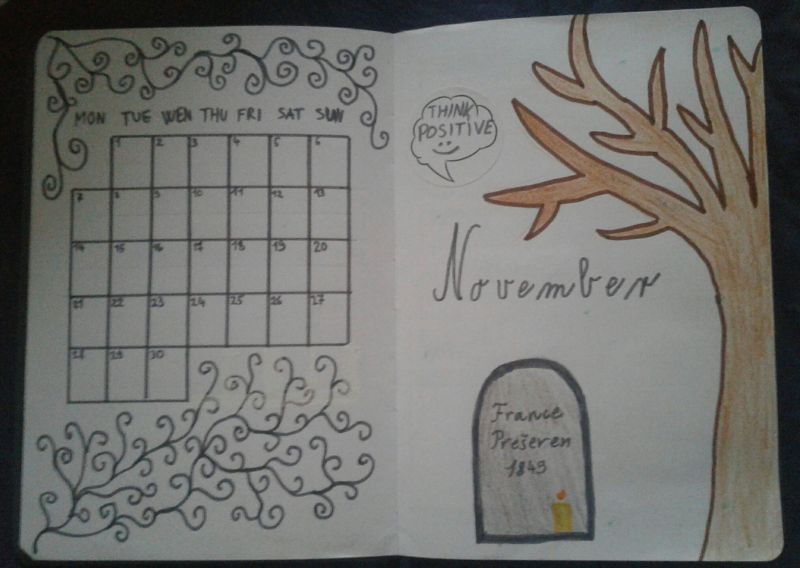 MON TUE WEN THU FRI SAT SUN
1 2 3 4 5 6
7 8 9 10 11 12 13
14 15 16 17 18 19 20
21 22 23 24 25 26 27
28 29 30
THINK
POSITIVE
November
France
Prešeren
1849